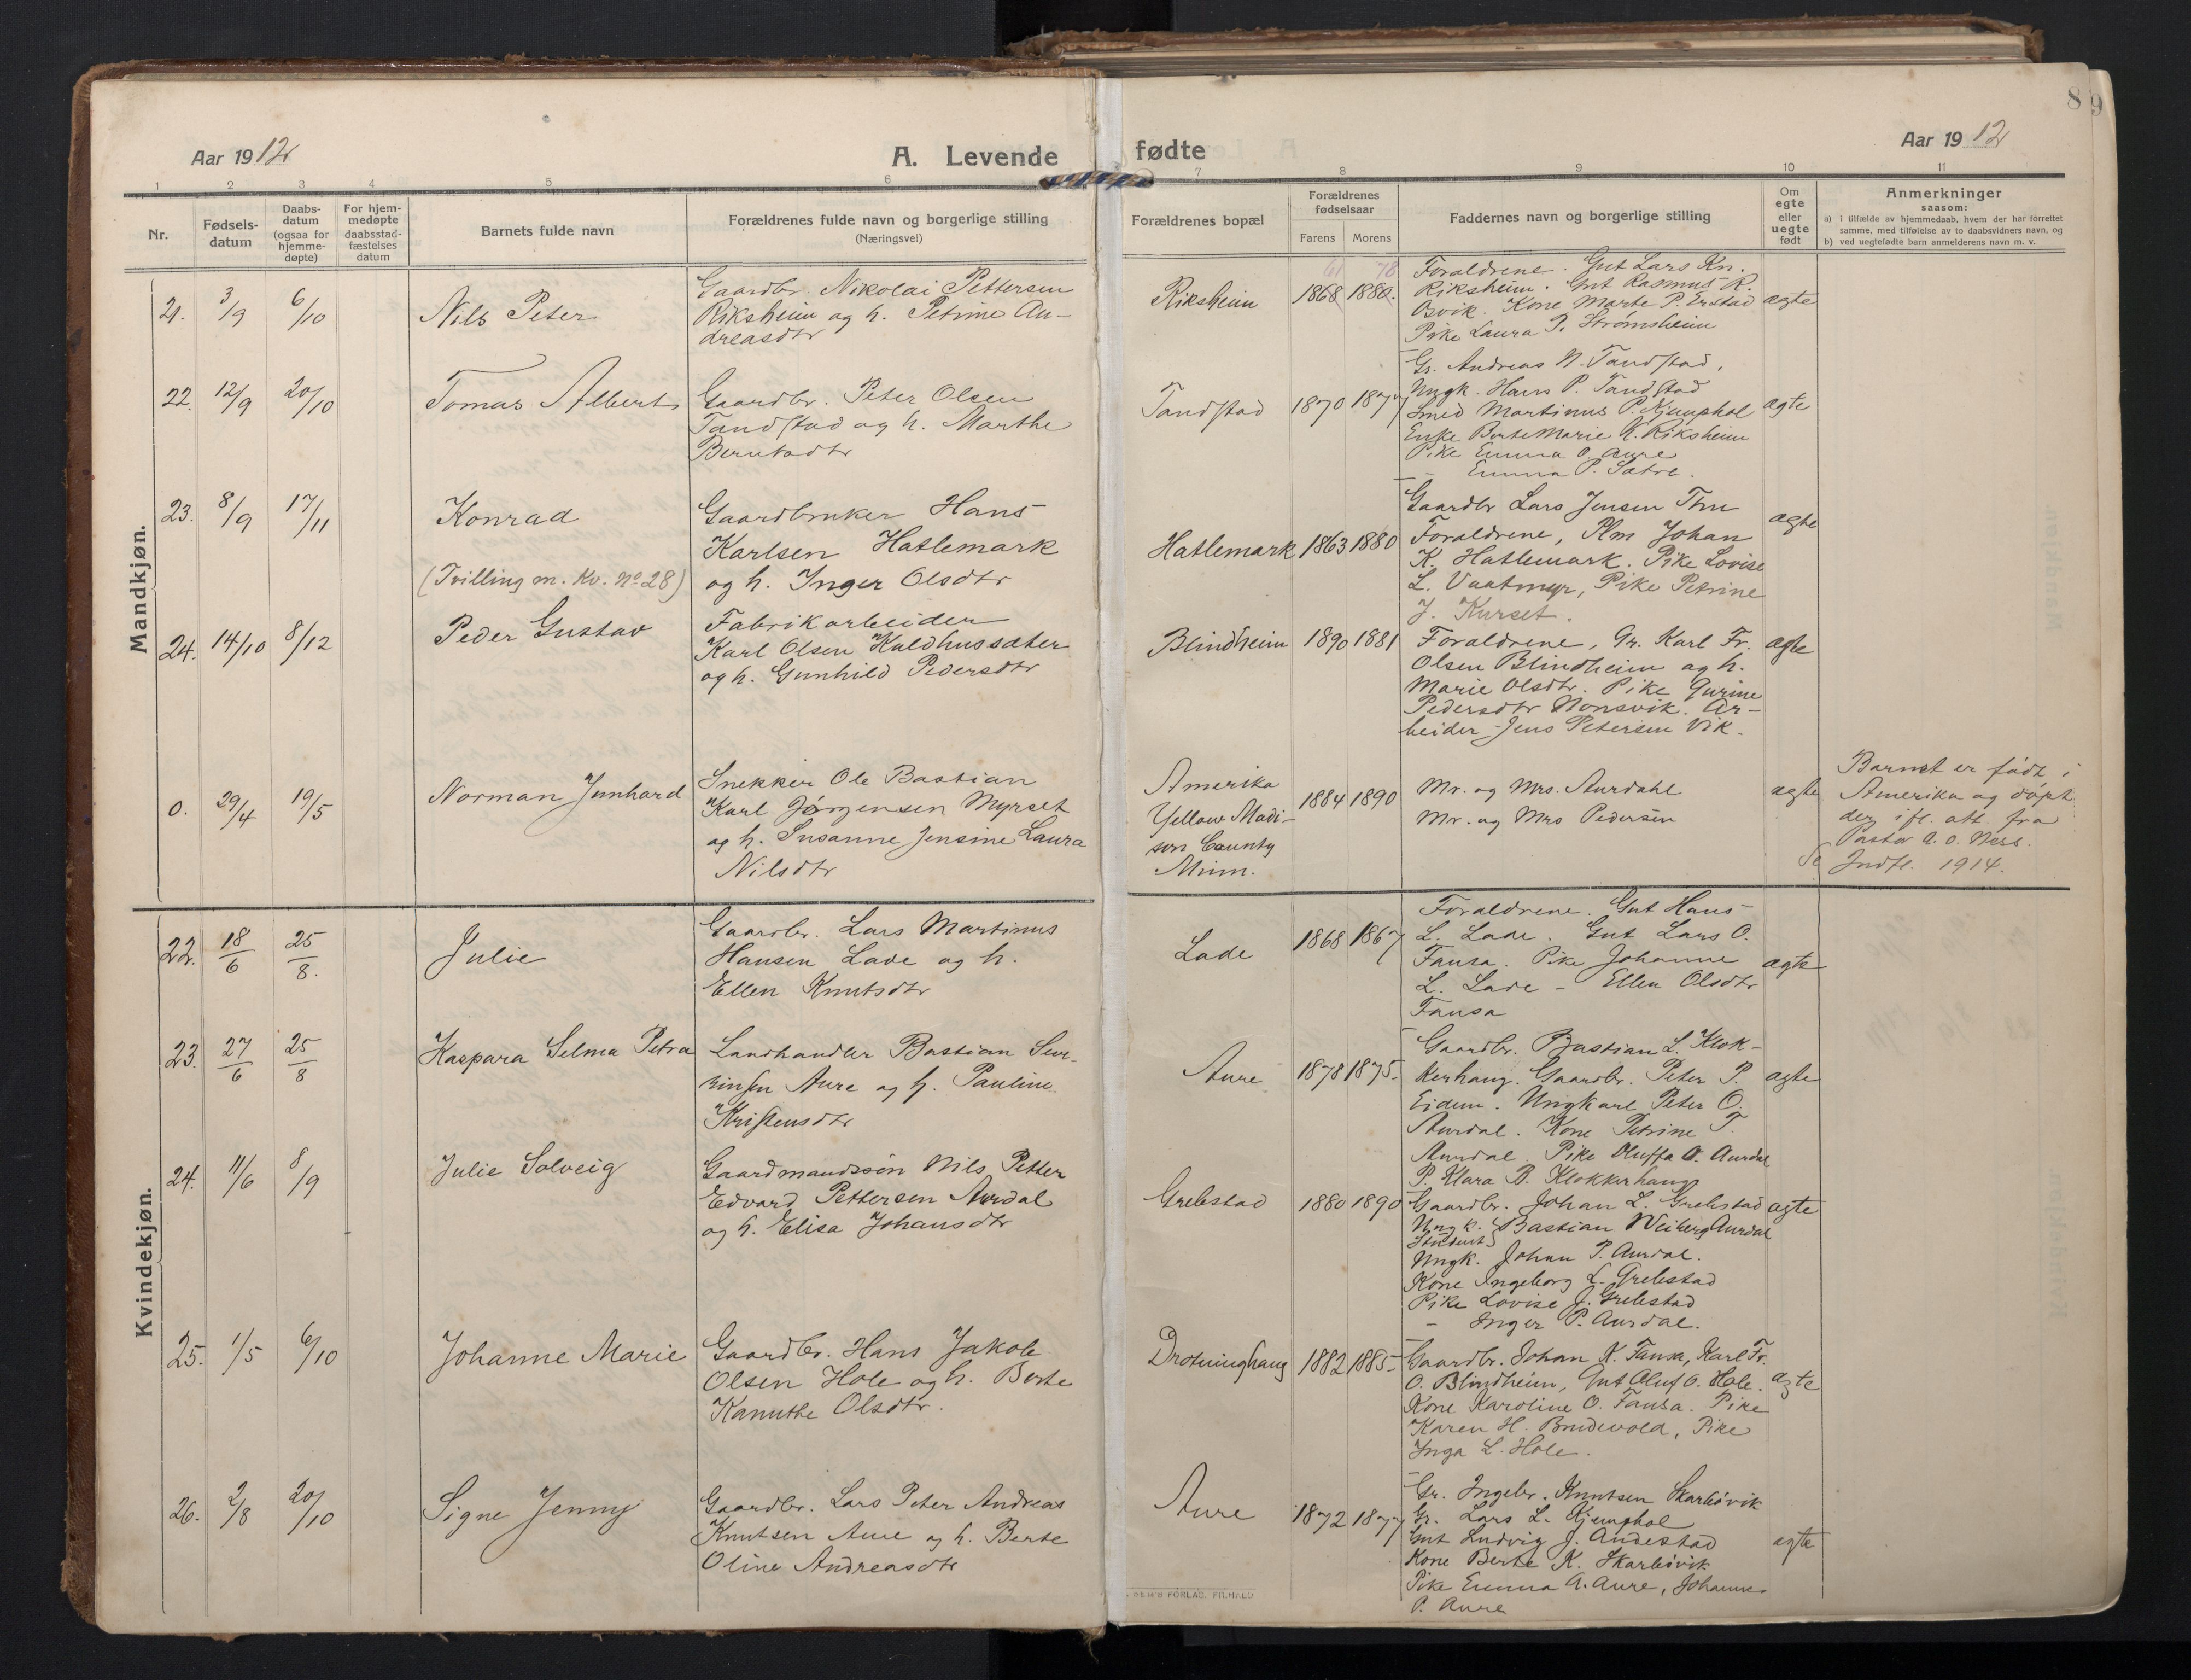 8 9
Aar 1912
A. Levende fødte
Aar 1912
1 2 3 4 5 6 7 8 9 10 11
Nr.
Fødsels-
datum
Daabs-
datum
(ogsaa for
hjemme-
døpte)
For hjem-
medøpte
daabsstad-
fæstelses
datum
Barnets fulde navn
Forældrenes fulde navn og borgerlige stilling
(Næringsvei)
Forældrenes bopæl
Forældrenes
fødselsaar
Farens Morens
Faddernes navn og borgerlige stilling
Om
egte
eller
uegte
født
Anmerkninger
saasom:
a) i tilfælde av hjemmedaab, hvem der har forrettet
samme, med tilføielse av to daabsvidners navn, og
b) ved uegtefødte barn anmelderens navn m. v.
Mandkjøn.
21. 3/9 6/10 Nils Peter
Gaardbr. Nikolai Pettersen
Riksheim og h. Petrine An-
dreasdtr
Riksheim
61 78
1868 1880.
Foraldrene. Gut Lars Kn.
Riksheim. Gut Rasmus R.
Osvik. Kone Marte P. Erstad
Pike Laura P. Strømsheim
agte
22. 12/9 20/10 Tomas Albert
Gaardbr. Peter Olsen
Tandstad og h. Marthe
Berntsdtr
Tandstad 1870 1877
Gr. Andreas N. Tandstad,
Ungk. Hans P. Tandstad
Smed Martinus P. Kjemphol
Enke Berte Marie K. Riksheim
Pike Emma O. Aure
- Emma P. Satre.
agte
23. 8/9 17/11 Konrad
(Tvilling m. Kv. No 28)
Gaardbruker Hans
Karlsen Hatlemark
og h. Inger Olsdtr
Hatlemark 1863 1880
Gaardbr Lars Jensen Thu
Foraldrene, Plm Johan
K. Hatlemark. Pike Lovise
L. Vaatmyr, Pike Petrine
J. Kurset.
agte
24. 14/10 8/12 Peder Gustav
Fabrikarbeider
Karl Olsen Kuldhussater
og h. Gunhild Pedersdtr
Blindheim 1890 1881
Foraldrene, Gr. Karl Fr.
Olsen Blindheim og h.
Marie Olsdtr. Pike Gurine
Pedersdtr Nonsvik. Ar-
beider Jens Petersen Vik.
agte
0. 29/4 19/5 Norman Junhard
Snekker Ole Bastian
Karl Jørgensen Myrset
og h. Susanne Jensine Laura
Nilsdtr
Amerika
Yellow Madi-
son County
Minn.
1884 1890
Mr. og Mrs. Aurdahl
Mr. og Mrs Pedersen
agte
Barnet er født i
Amerika og døpt
der ifl. att. fra
Pastor A. O. Ness.
Indfl. 1914.
Kvindekjøn.
22. 18/6 25/8. Julie
Gaardbr. Lars Martinus
Hansen Lade og h.
Ellen Knutsdtr
Lade 1868 1867
Foraldrene. Gut Hans
L. Lade. Gut Lars O.
Fausa. Pike Johanne
L. Lade - Ellen Olsdtr
Fausa
agte
23. 27/6 25/8 Kaspara Selma Petra
Landhandler Bastian Seve-
rinsen Aure og h. Pauline
Kristensdtr
Aure 1878 1875.
Gaardbr. Bastian L. Klok-
kerhaug. Gaardbr. Peter P.
Eidem. Ungkarl Peter O.
Aurdal. Kone Petrine T.
Aurdal. Pike Oluffa O. Aurdal
P. Klara B. Klokkerhaug
agte
24. 11/6 8/9 Julie Solveig
Gaardmandssøn Nils Petter
Edvard Pettersen Aurdal
og h. Elisa Johansdtr
Grebstad 1880 1890
Gaardbr. Johan L. Grebstad
Ungk. Student Bastian Weiberg Aurdal
Ungk. Johan P. Aurdal.
Kone Ingeborg L. Grebstad
Pike Lovise J. Grebstad
- Inger P. Aurdal.
agte
25. 1/5 6/10 Johanne Marie
Gaardbr. Hans Jakob
Olsen Hole og h. Berte
Kanutte Olsdtr.
Drotninghaug 1882 1885
Gaardbr. Johan K. Fausa, Karl Fr.
O. Blindheim, Gut Oluf O. Hole.
Kone Karoline O. Fausa. Pike
Karen H. Brudevold, Pike
Inga L. Hole.
agte
26. 2/8 20/10 Signe Jenny
Gaardbr. Lars Peter Andreas
Knutsen Aure og h. Berte
Oline Andreasdtr
Aure 1872 1877
Gr. Ingebr. Knutsen Skarbøvik
Gr. Lars L. Kjemphol
Gut Ludvig J. Andestad
Kone Berte K. Skarbøvik
Pike Emma A. Aure, Johanne
P. Aure
agte
FORLAG. FR.HALD